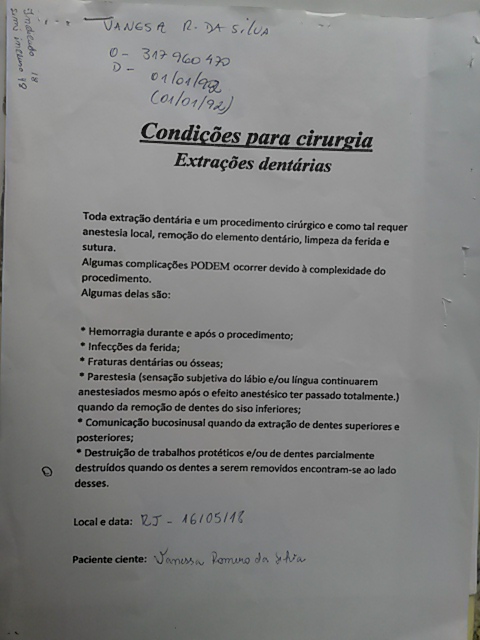 Vanesa R. da Silva
O- 317960470
D- 01/01/92
(01/01/92)
Indicado 18
semi incluso 48
Condições para cirurgia
Extrações dentárias
Toda extração dentária e um procedimento cirúrgico e como tal requer
anestesia local, remoção do elemento dentário, limpeza da ferida e
sutura.
Algumas complicações PODEM ocorrer devido à complexidade do
procedimento.
Algumas delas são:
* Hemorragia durante e após o procedimento;
* Infecções da ferida;
* Fraturas dentárias ou ósseas;
* Parestesia (sensação subjetiva do lábio e/ou língua continuarem
anestesiados mesmo após o efeito anestésico ter passado totalmente.)
quando da remoção de dentes do siso inferiores;
* Comunicação bucosinusal quando da extração de dentes superiores e
posteriores;
* Destruição de trabalhos protéticos e/ou de dentes parcialmente
destruídos quando os dentes a serem removidos encontram-se ao lado
desses.
Local e data: RJ - 16/05/18
Paciente ciente: Vanessa Romero da Silva